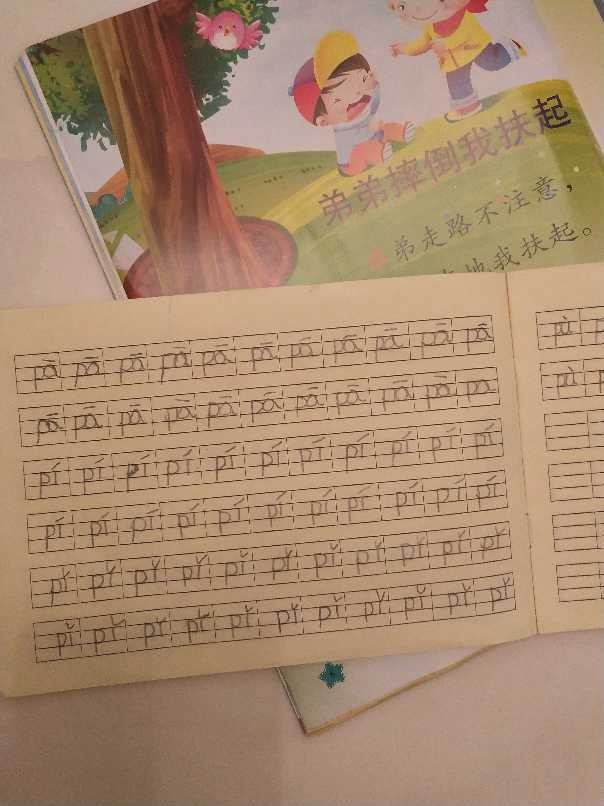 弟弟摔倒我扶起
弟走路不注意，
我扶起。
pā pā pā pā pā pā pā pā pā pā pā
pā pā pā pā pā pā pā pā pā pā pa
pí pí pí pí pí pí pí pí pí pí pí
pí pí pí pí pí pí pí pí pí pí pí
pǐ pǐ pǐ pǐ pǐ pǐ pǐ pǐ pǐ pǐ pǐ
pǐ pǐ pǐ pǐ pǐ pǐ pǐ pǐ pǐ pǐ pǐ
pù
pù